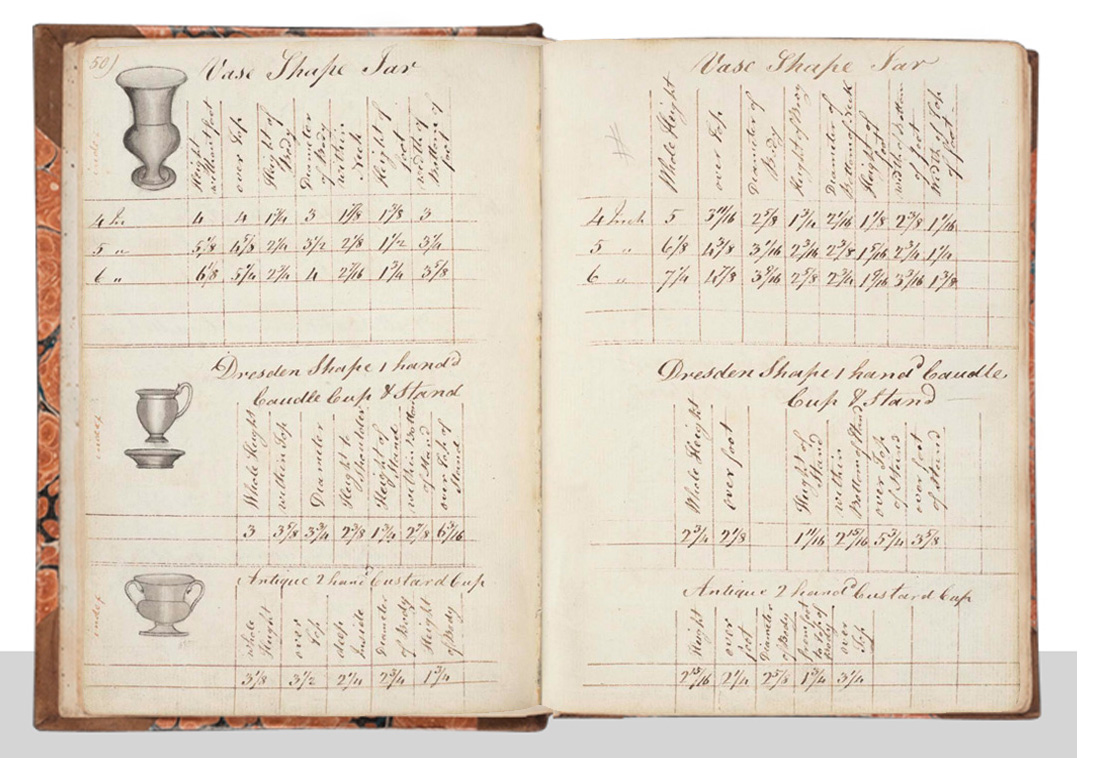 50)
Vase Shape Jar
Height without foot | over Top | Height of Body | Diameter of Body | within Neck | Height of foot | width of Bottom of foot
4 In | 4 | 4 | 1 3/4 | 3 | 1 7/8 | 1 3/8 | 3
5 " | 5 1/8 | 4 5/8 | 2 1/4 | 3 1/2 | 2 1/8 | 1 1/2 | 3 1/4
6 " | 6 1/8 | 5 1/4 | 2 3/4 | 4 | 2 7/16 | 1 3/4 | 3 5/8
index
Dresden Shape 1 hand'd
Caudle Cup & Stand
Whole Height | within Top | Diameter | Height to Shoulder | Height of Stand | within Bottom of Stand | over Top of Stand
3 | 3 5/8 | 3 3/4 | 2 3/8 | 1 3/4 | 2 7/8 | 6 3/16
index
Antique 2 hand'd Custard Cup
whole Height | over Top | deep inside | Diameter of Body | Height of Body
3 1/8 | 3 1/2 | 2 1/4 | 2 3/4 | 1 3/4
index
Vase Shape Jar
#
Whole Height | over Top | Diameter of Body | Height of Body | Diameter of Bottom of Neck | Height of foot | width of Bottom of foot | Width of Top of foot
4 Inch | 5 | 3 11/16 | 2 5/8 | 1 3/4 | 2 1/16 | 1 1/8 | 2 3/8 | 1 1/16
5 " | 6 1/8 | 4 3/8 | 3 1/16 | 2 3/16 | 2 3/8 | 1 5/16 | 2 3/4 | 1 1/4
6 " | 7 1/4 | 4 7/8 | 3 9/16 | 2 5/8 | 2 3/4 | 1 9/16 | 3 3/16 | 1 3/8
Dresden Shape 1 hand'd Caudle
Cup & Stand
Whole Height | over foot | Height of Stand | within Bottom of Stand | over Top of Stand | over foot of Stand
2 3/4 | 2 1/8 | 1 11/16 | 2 15/16 | 5 3/4 | 3 5/8
Antique 2 hand'd Custard Cup
Height | over foot | Diameter of Body | from foot to top of Body | over Top
2 15/16 | 2 1/4 | 2 5/8 | 1 3/4 | 3 1/4